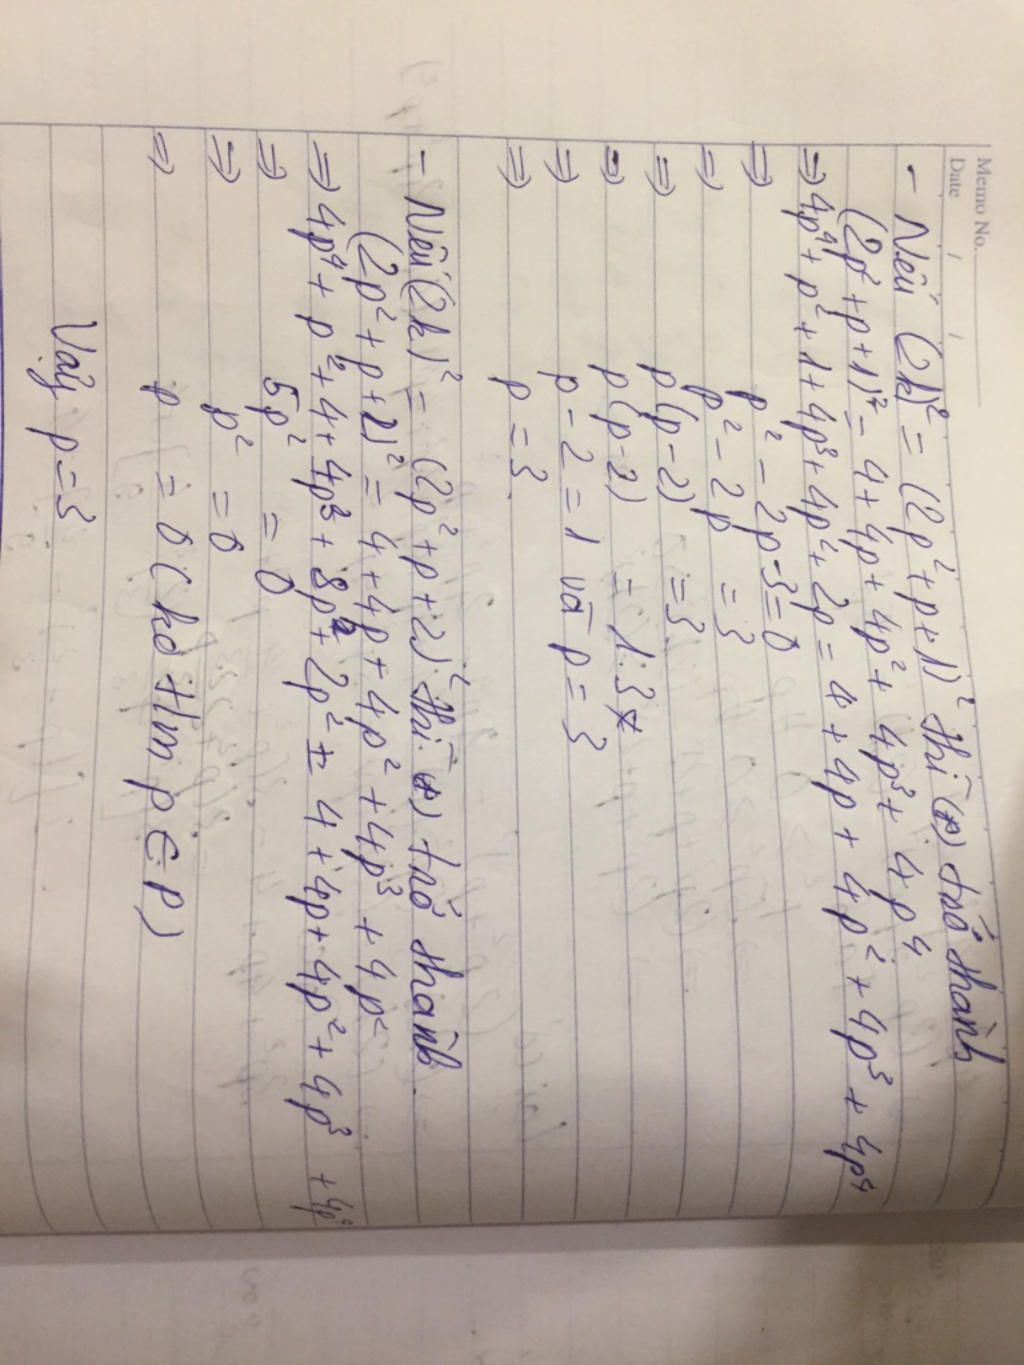 Memo No.
Date / /
- Nếu (2k)² = (2p²+p+1)² thì (*) trở thành
(2p²+p+1)² = 4+4p+4p²+4p³+4p⁴
⇒ 4p⁴+p²+1+4p³+4p²+2p = 4+4p+4p²+4p³+4p⁴
⇒ p²-2p-3=0
⇒ p²-2p =3
⇒ p(p-2) =3
⇒ p(p-2) = 1.3
⇒ p-2=1 và p=3
⇒ p=3.
- Nếu (2k)² = (2p²+p+2)² thì (*) trở thành.
(2p²+p+2)² = 4+4p+4p²+4p³+4p⁴
⇒ 4p⁴+p²+4+4p³+8p²+2p² = 4+4p+4p²+4p³+4p⁴
⇒ 5p² = 0
⇒ p² = 0
⇒ p = 0 (ko t/m p∈P)
Vậy p=3